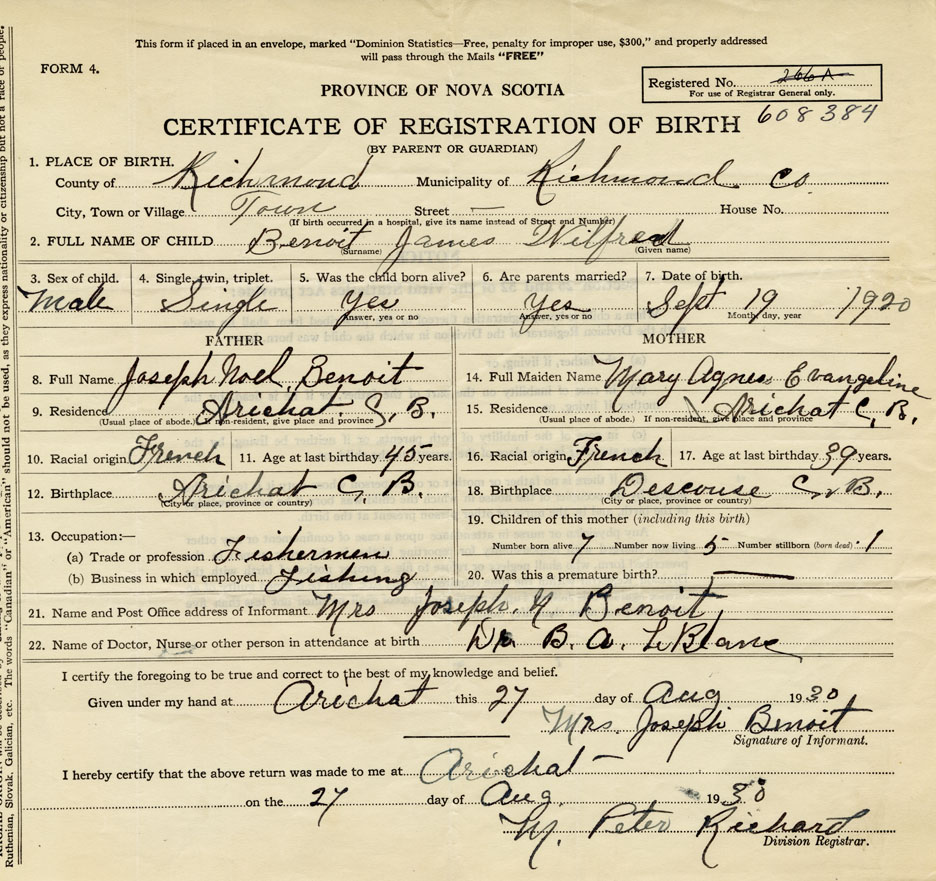 This form if placed in an envelope, marked "Dominion Statistics—Free, penalty for improper use, $300," and properly addressed
will pass through the Mails "FREE"
FORM 4.
Registered No. 266A
For use of Registrar General only.
PROVINCE OF NOVA SCOTIA
608384
CERTIFICATE OF REGISTRATION OF BIRTH
(BY PARENT OR GUARDIAN)
1. PLACE OF BIRTH.
County of Richmond Municipality of Richmond Co.
City, Town or Village Town Street — House No.
(If birth occurred in a hospital, give its name instead of Street and Number)
2. FULL NAME OF CHILD Benoit James Wilfred
(Surname) (Given name)
3. Sex of child. 4. Single, twin, triplet. 5. Was the child born alive? 6. Are parents married? 7. Date of birth.
Male Single Yes Yes Sept 19 1920
Answer, yes or no Answer, yes or no Month, day, year
FATHER MOTHER
8. Full Name Joseph Noel Benoit 14. Full Maiden Name Mary Agnes Evangeline
9. Residence Arichat C. B. 15. Residence Arichat C. B.
(Usual place of abode.) If non-resident, give place and province (Usual place of abode.) If non-resident, give place and province
10. Racial origin French 11. Age at last birthday 45 years. 16. Racial origin French 17. Age at last birthday 39 years.
12. Birthplace Arichat C. B. 18. Birthplace Descouse C. B.
(City or place, province or country) (City or place, province or country)
19. Children of this mother (including this birth)
13. Occupation:—
(a) Trade or profession Fishermen Number born alive 7 Number now living 5 Number stillborn (born dead) 1
(b) Business in which employed Fishing 20. Was this a premature birth? —
21. Name and Post Office address of Informant Mrs Joseph. N Benoit
22. Name of Doctor, Nurse or other person in attendance at birth Dr. B. A. LeBlanc
I certify the foregoing to be true and correct to the best of my knowledge and belief.
Given under my hand at Arichat this 27 day of Aug 1930
Mrs. Joseph Benoit
Signature of Informant.
I hereby certify that the above return was made to me at Arichat —
on the 27 day of Aug. 1930
M. Peter Richard
Division Registrar.
Ruthenian, Slovak, Galician, etc. The words "Canadian" or "American" should not be used, as they express nationality or citizenship but not a race or people.